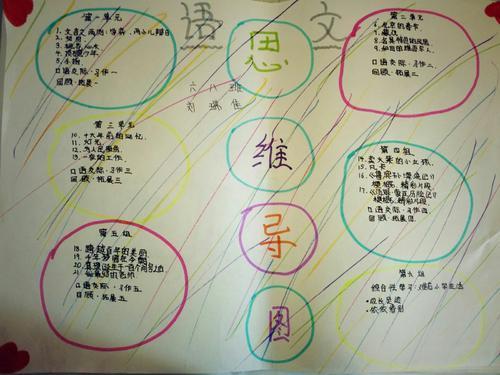 语文
思维导图
六八班
第一单元
1. 文言文两则：学弈、两小儿辩日
2. 匆匆
3. 桃花心木
4. 顶碗少年
5. 手指
口语交际·习作一
回顾·拓展一
第二单元
6. 北京的春节
7. 藏戏
8. 各具特色的民居
9. 和田的维吾尔人
口语交际·习作二
回顾·拓展二
第三单元
10. 十六年前的回忆
11. 灯光
12. 为人民服务
13. 一夜的工作
口语交际·习作三
回顾·拓展三
第四组
14. 卖火柴的小女孩
15. 凡卡
16. 《鲁滨孙漂流记》
梗概 精彩片段
17. 《汤姆·索亚历险记》
梗概 精彩片段
口语交际·习作四
回顾·拓展四
第五组
18. 跨越百年的美丽
19. 千年梦圆在今朝
20. 真理诞生于一百个问号之后
21. 我最好的老师
口语交际·习作五
回顾·拓展五
第六组
综合性学习：难忘小学生活
·成长足迹
·依依惜别